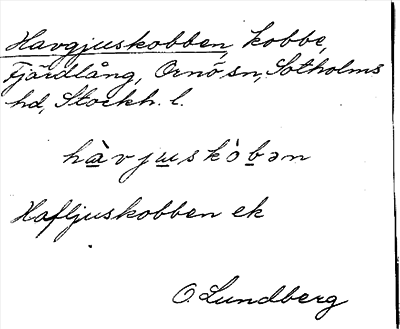 Havgjuskobben, kobbe,
Fjärdlång, Ornö sn, Sotholms
hd, Stockh. l.
hàvjuskòbən
Hafljuskobben ek
O. Lundberg